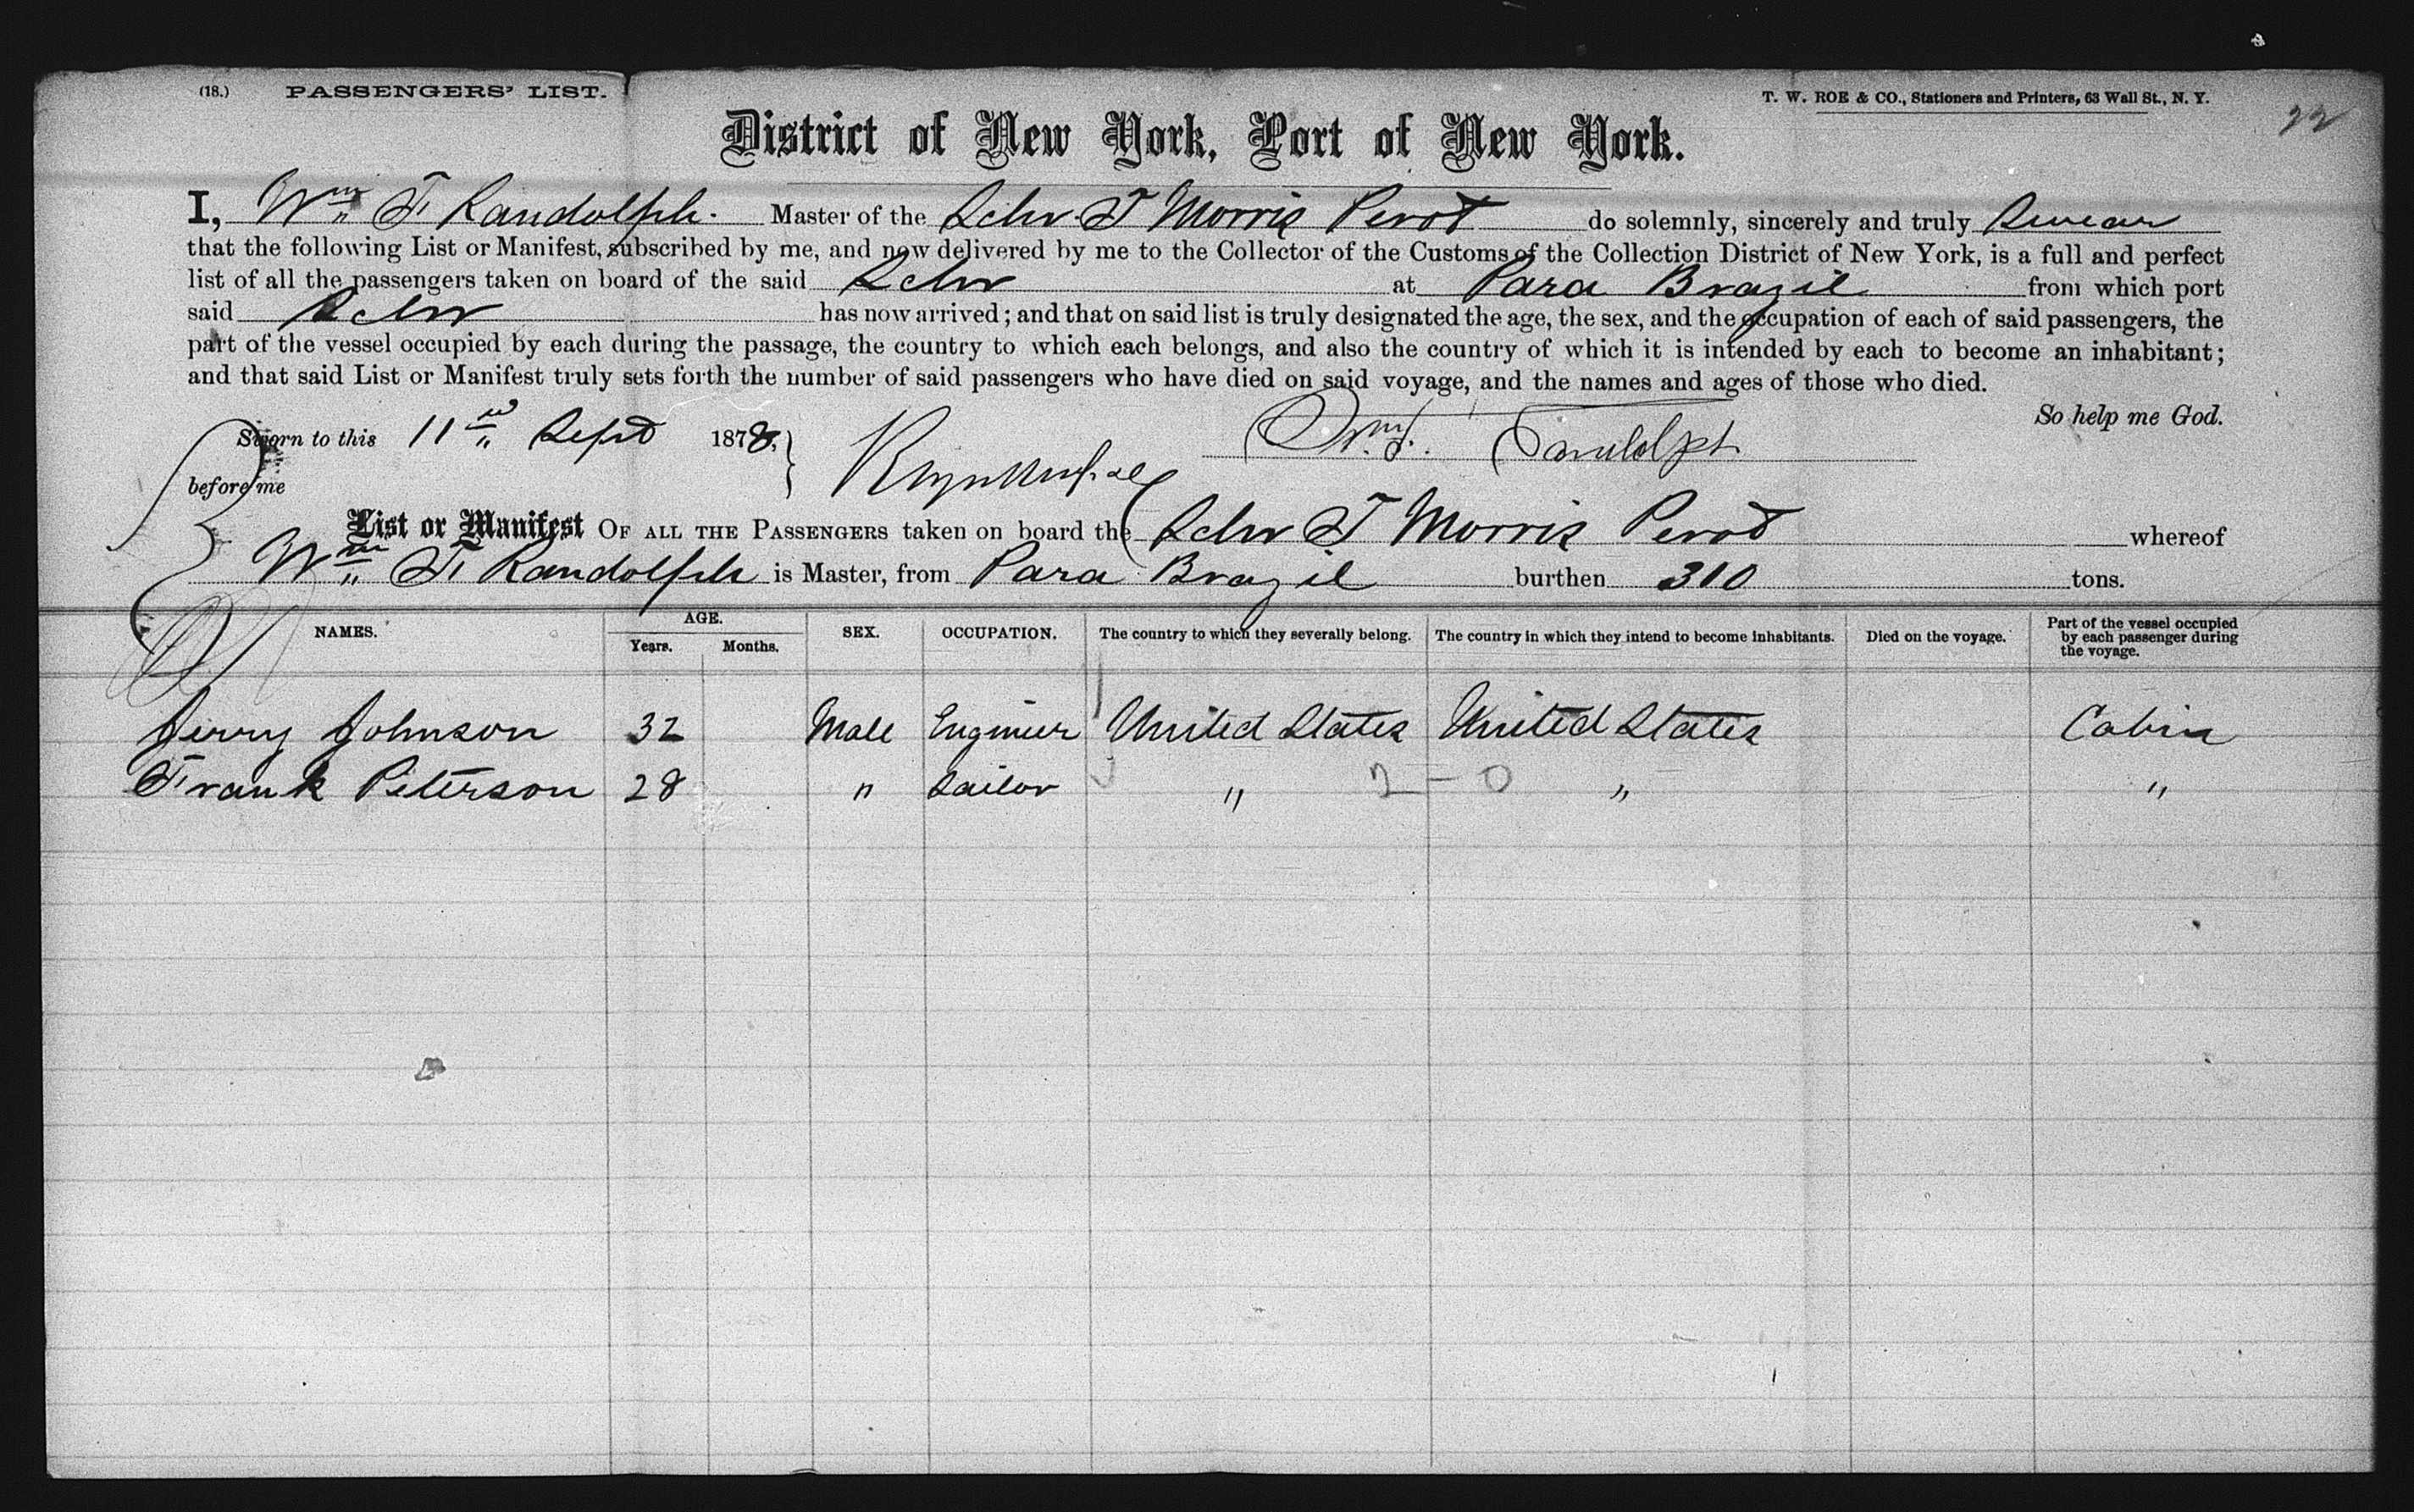 (18.) PASSENGERS' LIST. T. W. ROE & CO., Stationers and Printers, 63 Wall St., N. Y. 22
District of New York, Port of New York.
I, Wm F. Randolph. Master of the Schr T Morris Perot do solemnly, sincerely and truly Swear
that the following List or Manifest, subscribed by me, and now delivered by me to the Collector of the Customs of the Collection District of New York, is a full and perfect
list of all the passengers taken on board of the said Schr at Para Brazil from which port
said Schr has now arrived; and that on said list is truly designated the age, the sex, and the occupation of each of said passengers, the
part of the vessel occupied by each during the passage, the country to which each belongs, and also the country of which it is intended by each to become an inhabitant;
and that said List or Manifest truly sets forth the number of said passengers who have died on said voyage, and the names and ages of those who died.
So help me God.
Sworn to this 11th Sept 1878, Wm F. Randolph
before me
List or Manifest OF ALL THE PASSENGERS taken on board the Schr T Morris Perot whereof
Wm F. Randolph is Master, from Para Brazil burthen 310 tons.
NAMES. AGE. Years. Months. SEX. OCCUPATION. The country to which they severally belong. The country in which they intend to become inhabitants. Died on the voyage. Part of the vessel occupied by each passenger during the voyage.
Jerry Johnson 32 Male Engineer United States United States Cabin
Frank Peterson 28 " Sailor " 2 - 0 " "